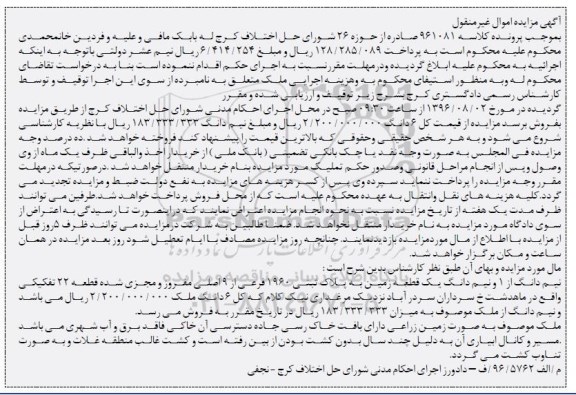 آگهی مزایده اموال غیرمنقول
بموجب پرونده کلاسه ۹۶۱۰۸۱ صادره از حوزه ۲۶ شورای حل اختلاف کرج له بابک مافی و علیه و فردین خانمحمدی
محکوم علیه محکوم است به پرداخت ۱۲۸/۲۸۵/۰۸۹ ریال و مبلغ ۶/۴۱۴/۲۵۴ ریال نیم عشر دولتی باتوجه به اینکه
اجرائیه به محکوم علیه ابلاغ گردیده و در مهلت مقرر نسبت به اجرای حکم اقدام ننموده است بنا به درخواست تقاضای
محکوم له و به منظور استیفای محکوم به و هزینه اجرایی ملک متعلق به نامبرده از سوی این اجرا توقیف و توسط
کارشناس رسمی دادگستری کرج پس از توقیف و ارزیابی شده و مقرر
گردیده در مورخ ۱۳۹۶/۰۸/۰۲ از ساعت ۹:۳۰ صبح در محل اجرای احکام مدنی شورای حل اختلاف کرج از طریق مزایده
بفروش برسد مزایده از قیمت کل ۶ دانگ ۲/۲۰۰/۰۰۰/۰۰۰ ریال و مبلغ نیم دانگ ۱۸۳/۳۳۳/۳۳۳ ریال با نظریه کارشناسی
شروع می شود و به هر شخص حقیقی وحقوقی که بالاترین قیمت را پیشنهاد کند فروخته خواهد شد. ده درصد وجه
مزایده فی المجلس به صورت وجه نقد یا چک بانکی تضمینی (بانک ملی) از خریدار اخذ والباقی ظرف یک ماه از وی
وصول و پس از انجام مراحل قانونی وصدور حکم تملیک مورد مزایده بنام خریدار منتقل خواهد شد. در صورتیکه در مهلت
مقرر وجه مزایده را پرداخت ننماید سپرده وی پس از کسر هزینه های مزایده به نفع دولت ضبط و مزایده تجدید می
گردد. کلیه هزینه های نقل وانتقال به عهده محکوم علیه است که از محل فروش پرداخت خواهد شد. طرفین می توانند
ظرف مدت یک هفته از تاریخ مزایده نسبت به نحوه انجام مزایده اعتراض نمایند که در اینصورت تا رسیدگی به اعتراض از
سوی دادگاه مورد مزایده به نام خریدار منتقل نخواهد شد. ضمنا طالبین شرکت در مزایده می توانند ظرف ۵ روز قبل
از مزایده با اطلاع از مال مورد مزایده بازدید نمایند. چنانچه روز مزایده مصادف با ایام تعطیل شود روز بعد مزایده در همان
ساعت و مکان برگزار خواهد شد.
مال مورد مزایده و بهای آن طبق نظر کارشناس بدین شرح است:
نیم دانگ از ۱ و نیم دانگ یک قطعه زمین به پلاک ثبتی ۱۹۶۰ فرعی از ۹ اصلی مفروز و مجزی شده قطعه ۲۲ تفکیکی
واقع در ماهدشت خ سرداران سردر آباد نزدیک مرغداری تک کلا که کل ۶ دانگ ملک ۲/۲۰۰/۰۰۰/۰۰۰ ریال می باشد
و نیم دانگ از ملک موصوف به میزان ۱۸۳/۳۳۳/۳۳۳ ریال در تاریخ مقرر به فروش می رسد.
ملک موصوف به صورت زمین زراعی دارای بافت خاک رسی جاده دسترسی آن خاکی فاقد برق و آب شهری می باشد
.مسیر و کانال ابیاری آن به دلیل چند سال بدون کشت بودن از بین رفته است و کشت غالب منطقه غلات و به صورت
تناوب کشت می گردد.
م/الف ۹۶/۵۷۶۲/ف – دادورز اجرای احکام مدنی شورای حل اختلاف کرج -نجفی